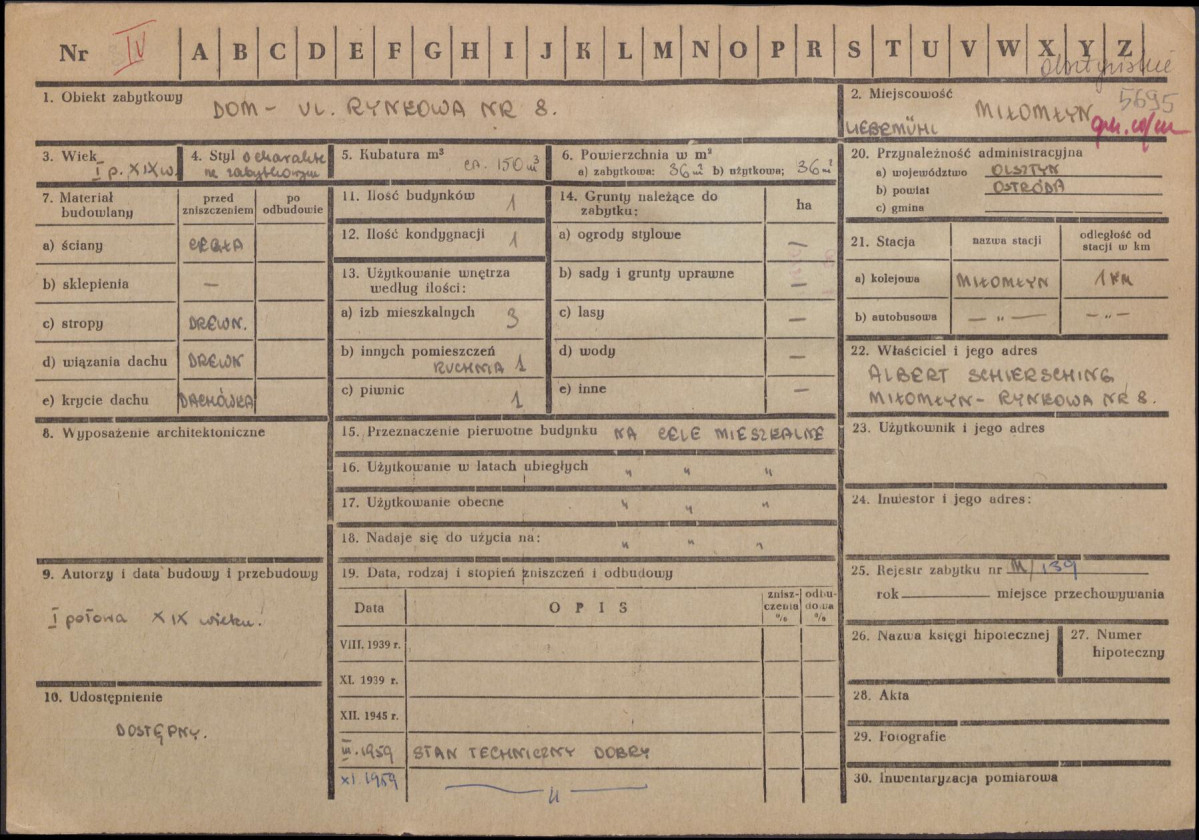 Nr IV A B C D E F G H I J K L M N O P R S T U V W X Y Z
olsztyńskie
1. Obiekt zabytkowy
DOM - UL. RYNKOWA NR 8.
2. Miejscowość
MIŁOMŁYN
5695
LIEBEMÜHL
3. Wiek
I p. XIX w.
4. Styl o charakte
rze zabytkowym
5. Kubatura m³
ca. 150 m³
6. Powierzchnia w m²
a) zabytkowa: 36 m² b) użytkowa; 36 m²
7. Materiał budowlany
przed zniszczeniem
po odbudowie
a) ściany CEGŁA
b) sklepienia —
c) stropy DREWN.
d) wiązania dachu DREWN
e) krycie dachu DACHÓWKA
8. Wyposażenie architektoniczne
9. Autorzy i data budowy i przebudowy
I połowa XIX wieku.
10. Udostępnienie
DOSTĘPNY.
11. Ilość budynków 1
12. Ilość kondygnacji 1
13. Użytkowanie wnętrza
według ilości:
a) izb mieszkalnych 3
b) innych pomieszczeń
KUCHNIA 1
c) piwnic 1
14. Grunty należące do
zabytku:
ha
a) ogrody stylowe —
b) sady i grunty uprawne —
c) lasy —
d) wody —
e) inne —
15. Przeznaczenie pierwotne budynku NA CELE MIESZKALNE
16. Użytkowanie w latach ubiegłych " " "
17. Użytkowanie obecne " " "
18. Nadaje się do użycia na: " " "
19. Data, rodzaj i stopień zniszczeń i odbudowy
Data
OPIS
znisz-
czenia
%
odbu-
dowa
%
VIII. 1939 r.
XI. 1939 r.
XII. 1945 r.
III. 1959 STAN TECHNICZNY DOBRY
XI 1959 — " —
20. Przynależność administracyjna
a) województwo OLSZTYN
b) powiat OSTRÓDA
c) gmina
21. Stacja
nazwa stacji
odległość od
stacji w km
a) kolejowa MIŁOMŁYN 1 KM
b) autobusowa — " — — " —
22. Właściciel i jego adres
ALBERT SCHIERSCHING
MIŁOMŁYN - RYNKOWA NR 8.
23. Użytkownik i jego adres
24. Inwestor i jego adres:
25. Rejestr zabytku nr M/139
rok miejsce przechowywania
26. Nazwa księgi hipotecznej
27. Numer
hipoteczny
28. Akta
29. Fotografie
30. Inwentaryzacja pomiarowa